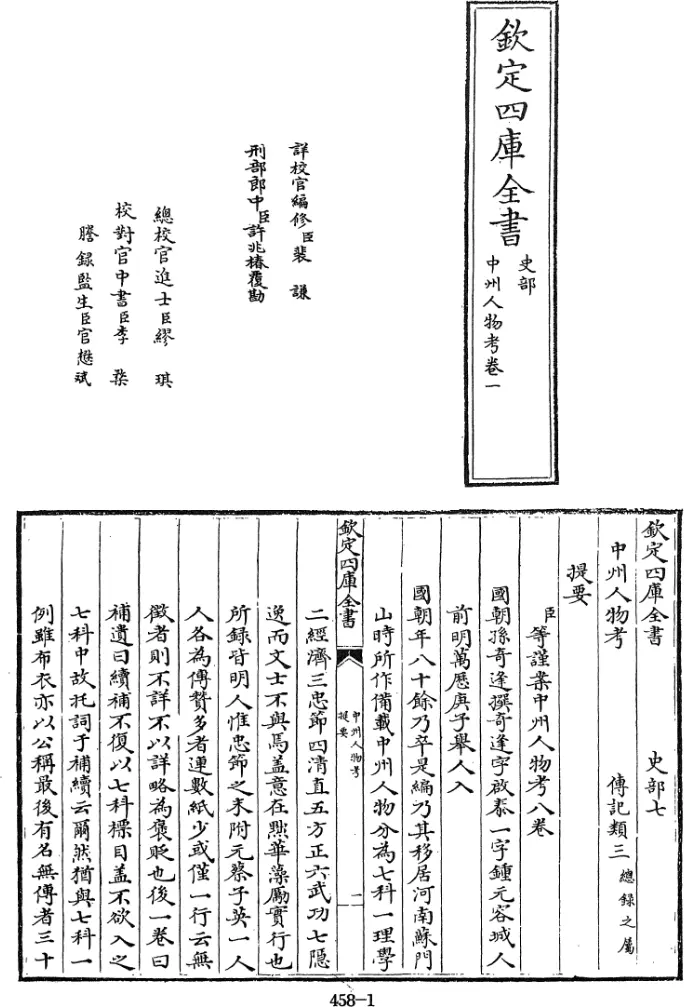 欽定四庫全書
史部
中州人物考卷一
詳校官編修臣裴謙
刑部郎中臣許兆椿覆勘
總校官進士臣繆琪
校對官中書臣李榘
謄錄監生臣官懋斌
欽定四庫全書
史部七
中州人物考
傳記類三總録之屬
提要
臣等謹案中州人物考八卷
國朝孫奇逢撰奇逢字啟泰一字鍾元容城人
前明萬厯庚子舉人入
國朝年八十餘乃卒是編乃其移居河南蘇門
山時所作備載中州人物分為七科一理學
欽定四庫全書
中州人物考
提要
一
二經濟三忠節四清直五方正六武功七隠
逸而文士不與焉盖意在黜華藻勵實行也
所録皆明人惟忠節之末附元蔡子英一人
人各為傳贊多者連數紙少或僅一行云無
徵者則不詳不以詳略為褒貶也後一卷曰
補遺曰續補不復以七科標目盖不欲入之
七科中故托詞于補續云爾然猶與七科一
例雖布衣亦以公稱最後有名無傳者三十
458-1